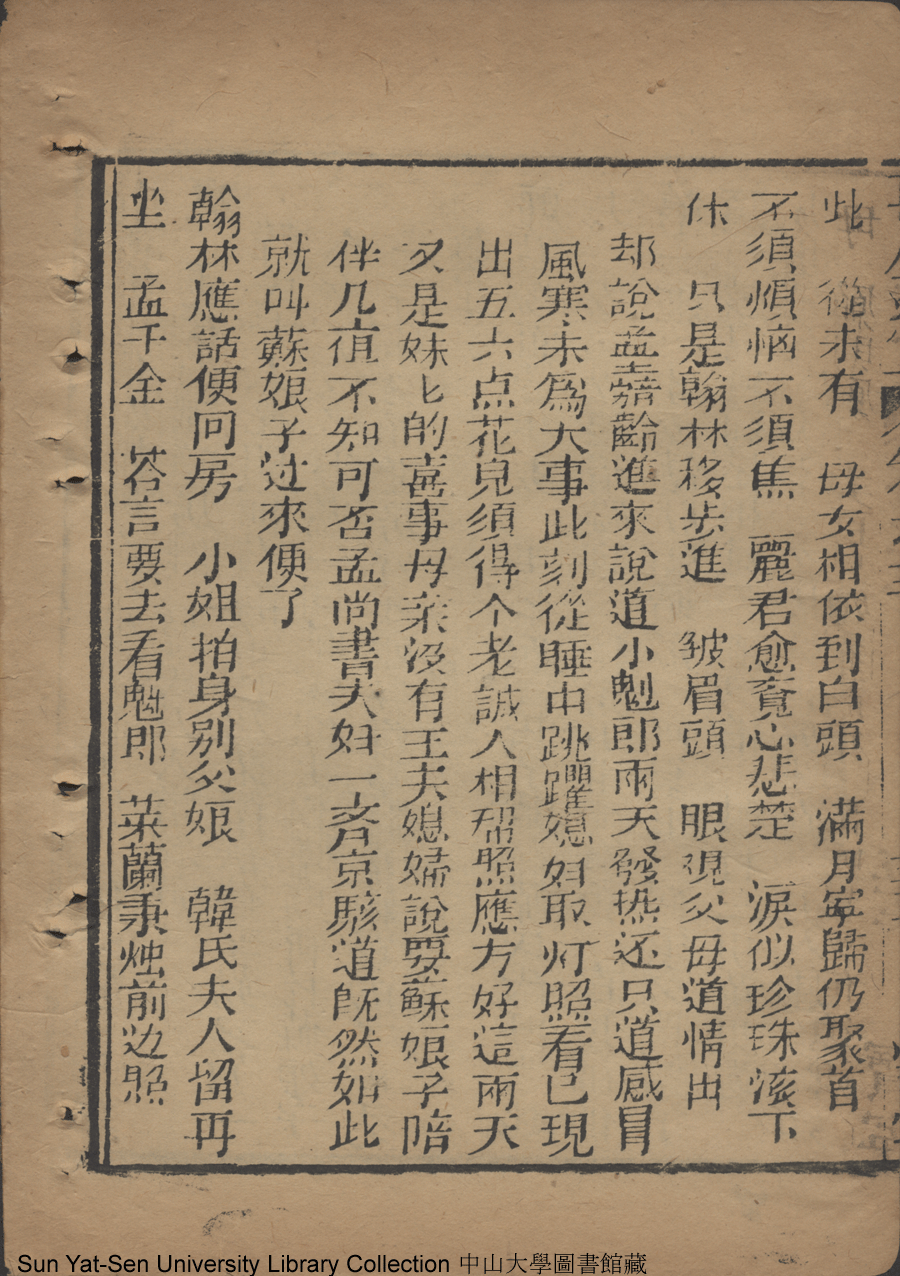 此　從未有　母女相依到白頭　滿月寧歸仍聚首
不須煩惱不須焦　麗君愈覔心悲楚　淚似珍珠滚下
休　只是翰林移步進　皱眉頭　眼現父毋道情出
却說孟嘉齡進來說道小魁郎兩天發热还只道感冒
風寒未爲大事此刻從睡中跳躍媳妇取灯照看已現
出五六点花兒須得个老誠人相帮照應方好這兩天
又是妹匕的喜事母亲没有工夫媳婦說要蘇娘子陪
伴几夜不知可否孟尚書夫妇一斉京駭道既然如此
就叫蘇娘子过來便了
翰林應話便回房　小姐抽身别父娘　韓氏夫人留再
坐　孟千金　荅言要去看魁郎　菜蘭秉烛前边照
Sun Yat-Sen University Library Collection 中山大學圖書館藏